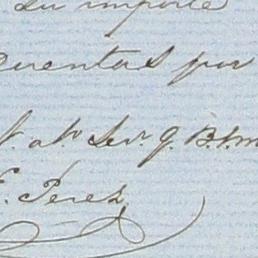 su importe
cuentas por
af. at. Serv. q. B.s.m
E. Perez